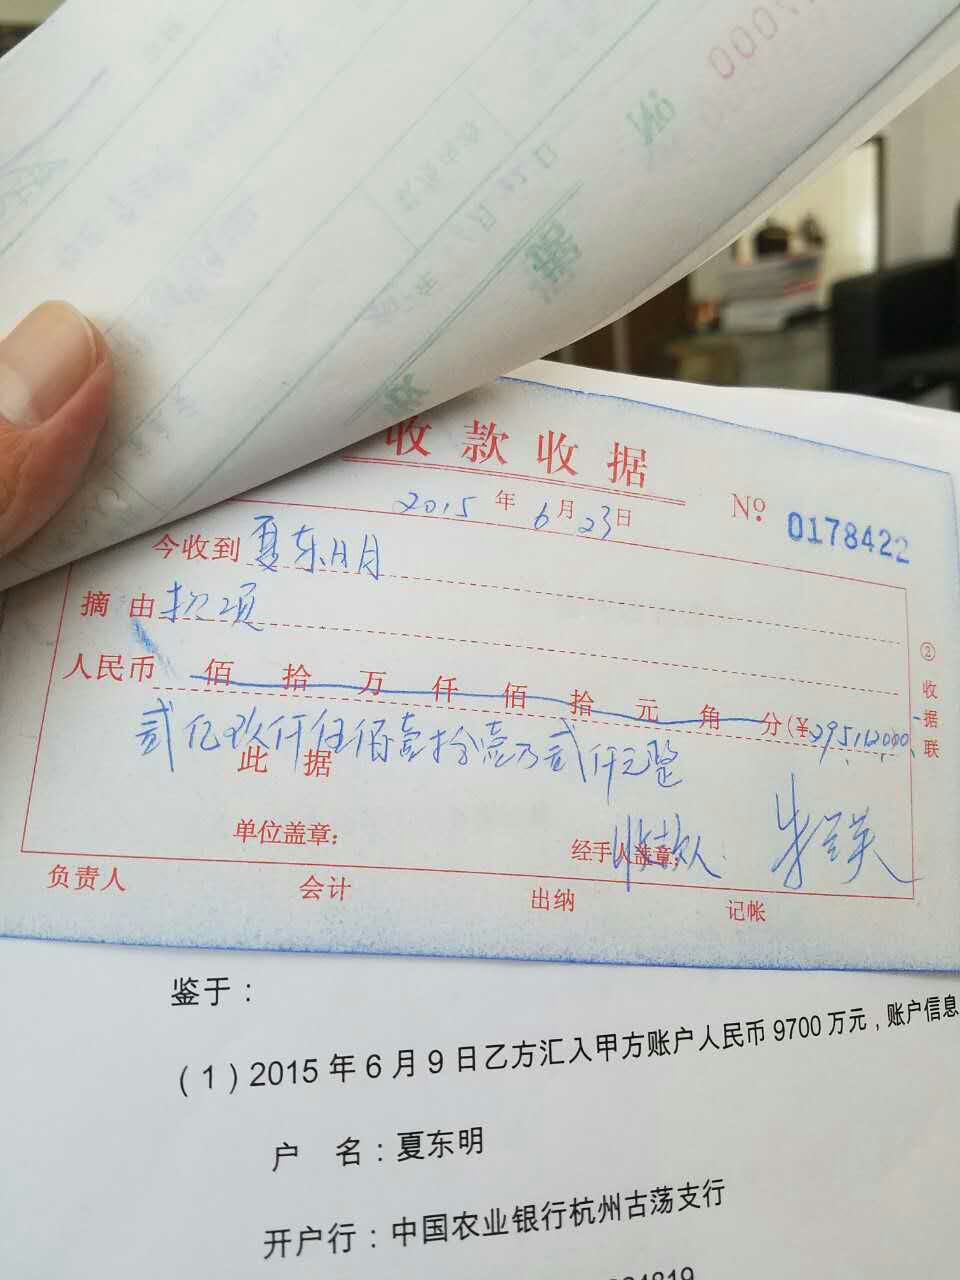 收款收据
2015年6月23日 No. 0178422
今收到 夏东明
摘由 款项
人民币 佰拾万仟佰拾元角分(¥295,112,000
贰亿玖仟伍佰壹拾壹万贰仟元整
此据
单位盖章: 经手人盖章: 收款人
负责人 会计 出纳 记帐
②收据联
鉴于:
(1)2015年6月9日乙方汇入甲方账户人民币9700万元,账户信息
户 名:夏东明
开户行:中国农业银行杭州古荡支行